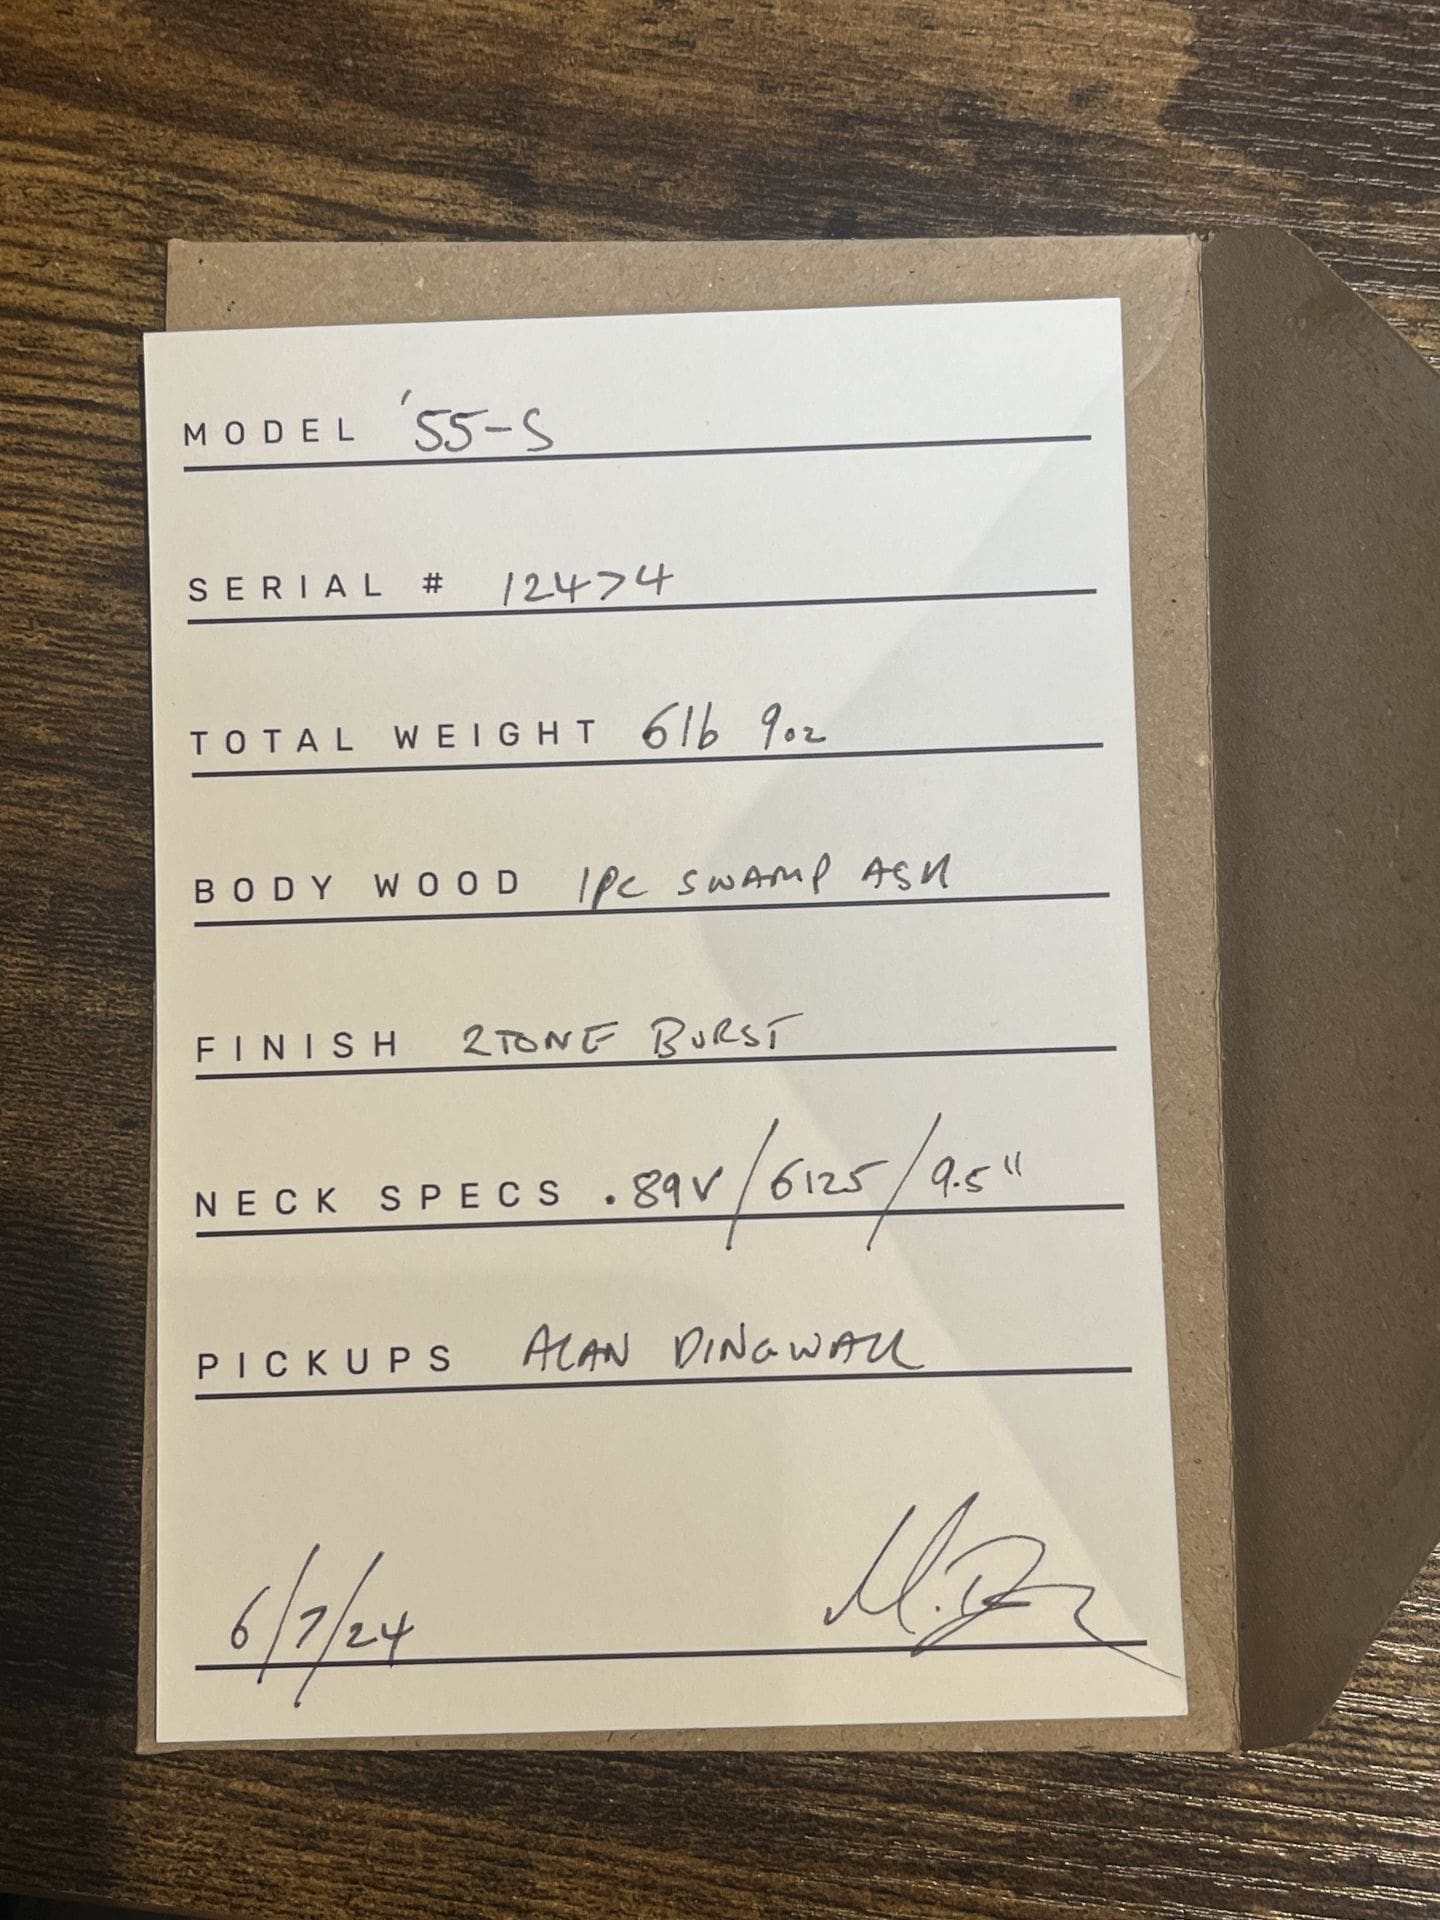 MODEL '55-S
SERIAL # 12474
TOTAL WEIGHT 6lb 9oz
BODY WOOD 1PC SWAMP ASH
FINISH 2TONE BURST
NECK SPECS .89V/6125/9.5"
PICKUPS ALAN DINGWALL
6/7/24